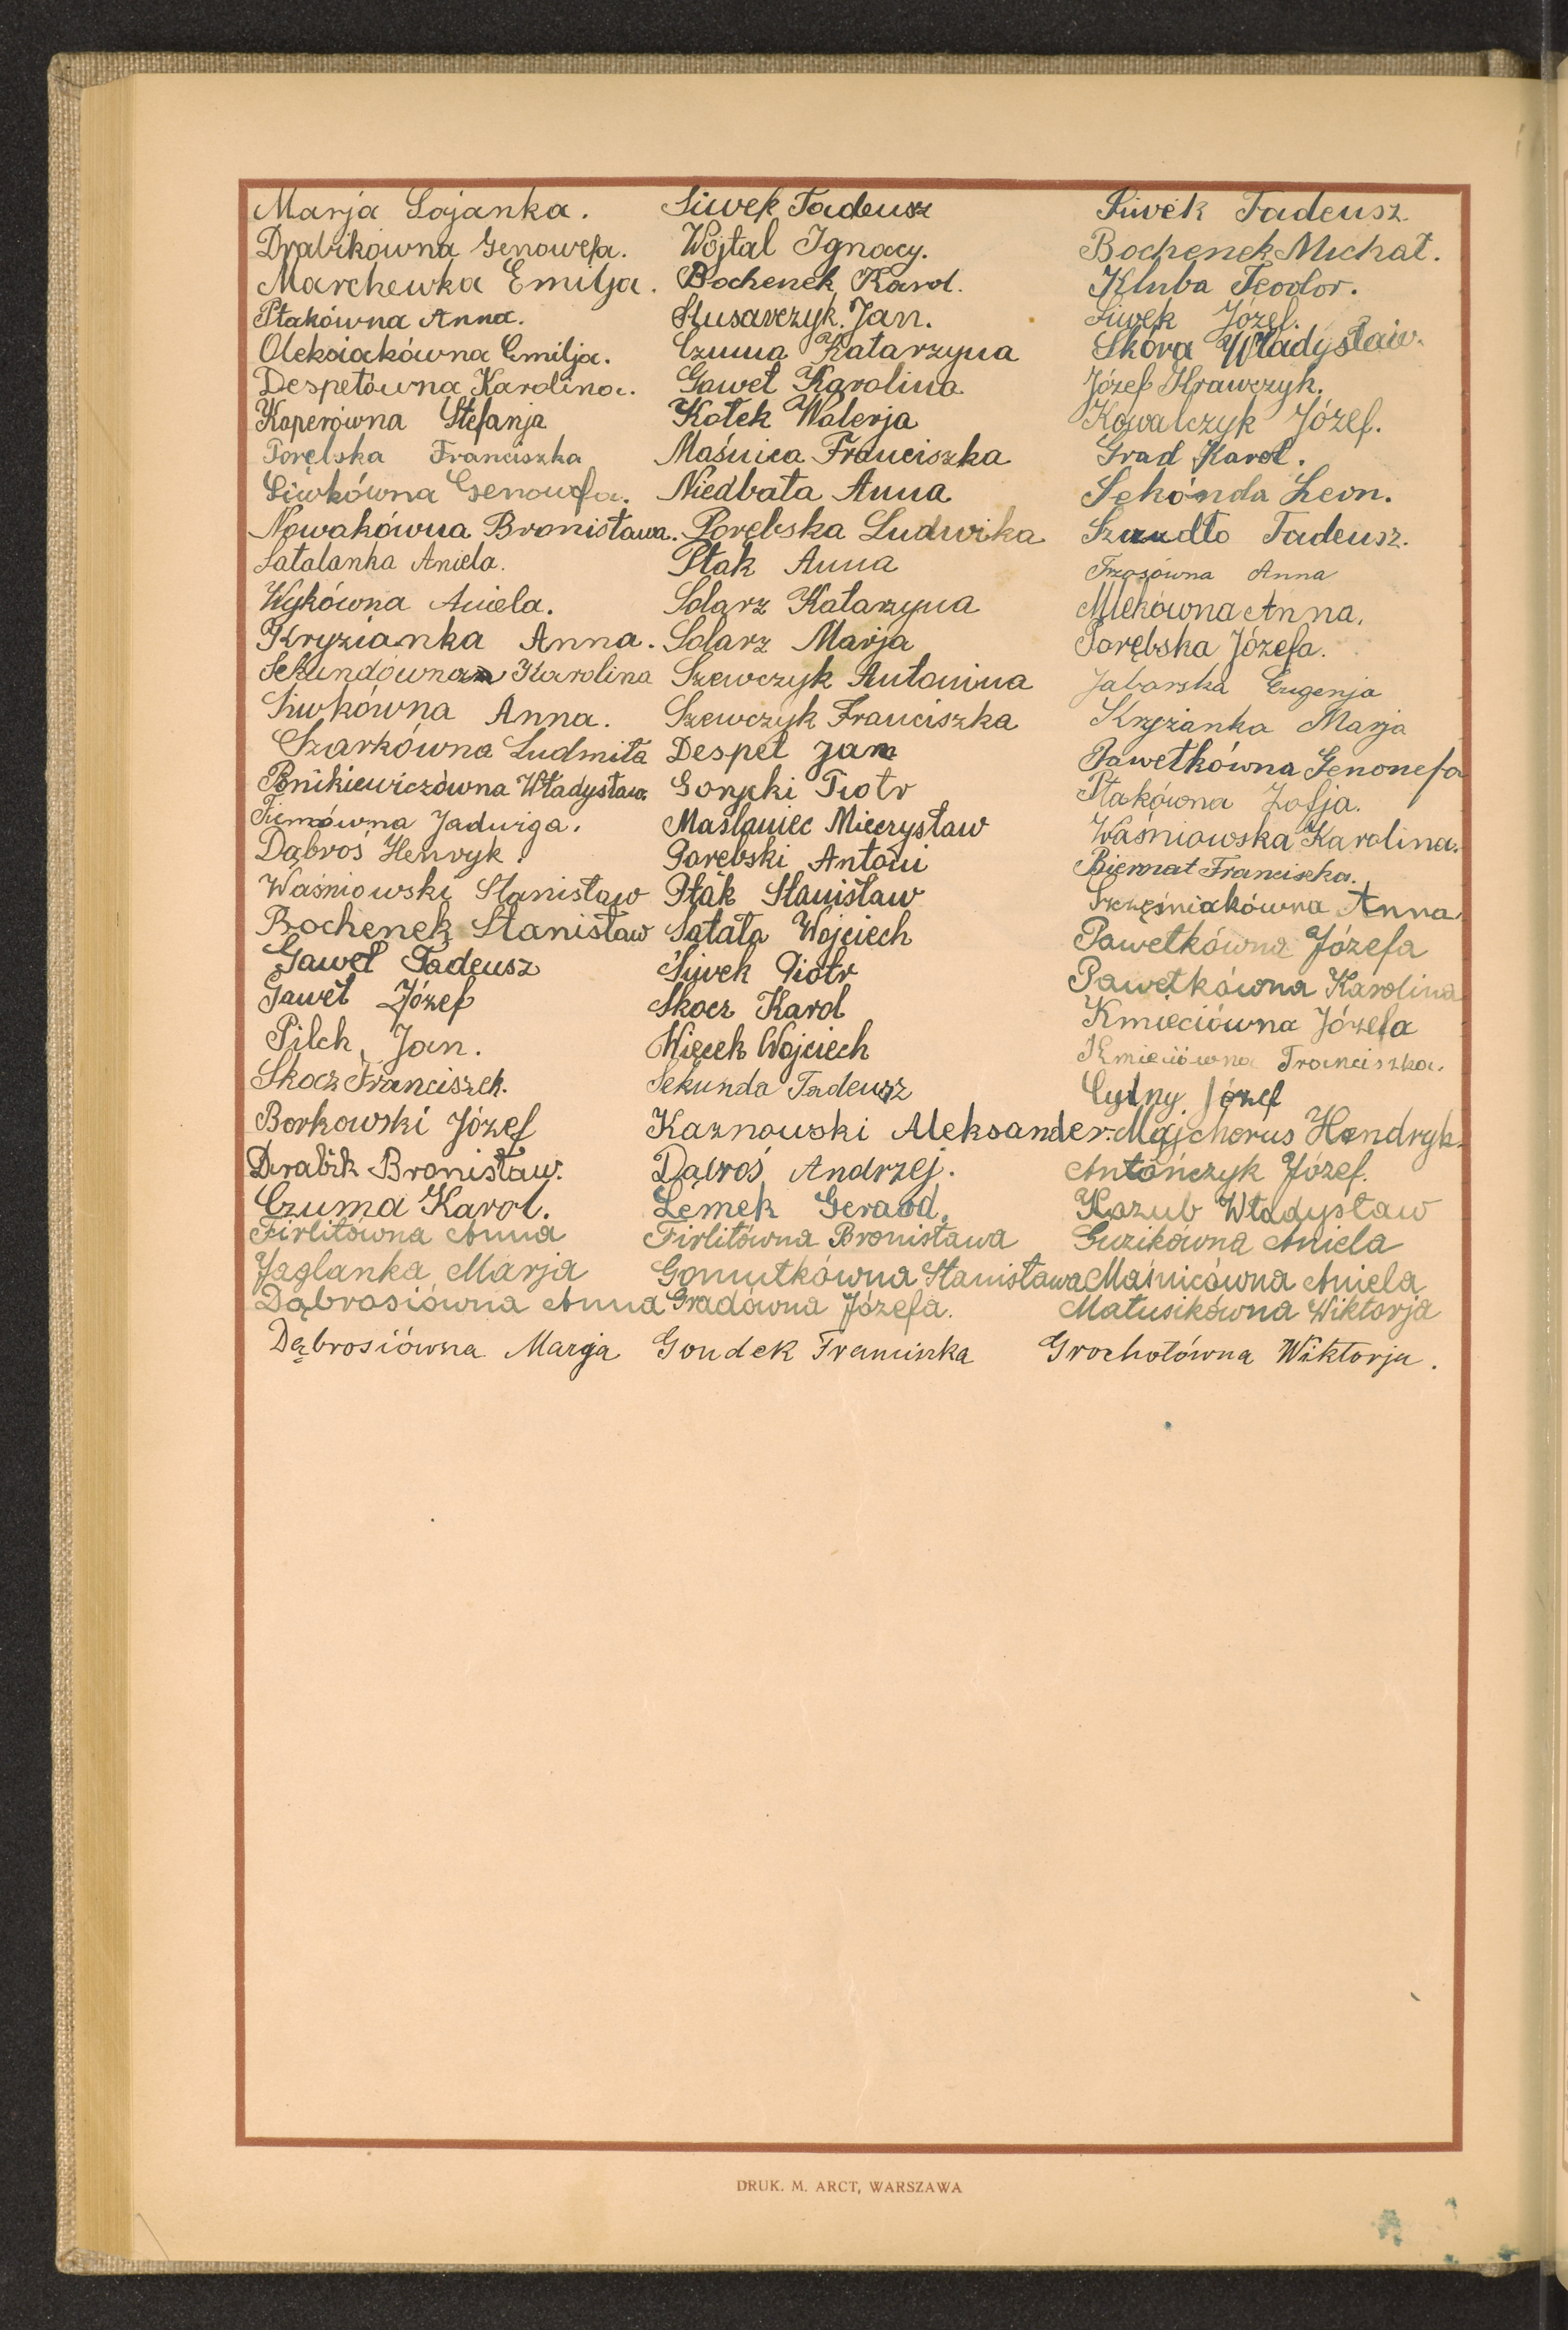 Marja Lojanka. Siwek Tadeusz Siwek Tadeusz
Drabikówna Genowefa. Wójtal Ignacy. Bochenek Michał.
Marchewka Emilja. Bochenek Karol. Kluba Teodor.
Ptakówna Anna. Słusarczyk Jan. Siwek Józef.
Oleksiakówna Emilja. Czuma Katarzyna Skóra Władysław.
Despetówna Karolina. Gaweł Karolina Józef Krawczyk.
Koperówna Stefanja Kotek Walerja Kowalczyk Józef.
Porębska Franciszka Maśnica Franciszka Grad Karol.
Siwkówna Genowefa. Niedbała Anna Sekónda Leon.
Nowakówna Bronisława. Porębska Ludwika Szudło Tadeusz.
Satalanka Aniela. Ptak Anna Trzosówna Anna
Wykówna Aniela. Solarz Katarzyna Mlekówna Anna.
Kryzianka Anna. Solarz Marja Porębska Józefa.
Sekundówna Karolina Szewczyk Antonina Jaborska Eugenja
Siwkówna Anna. Szewczyk Franciszka Krzyżanka Marja
Szarkówna Ludmiła Despet Jan Pawełkówna Genowefa
Ponikiewiczówna Władysława Gorycki Piotr Ptakówna Zofja.
Jadwiga. Maślaniec Mieczysław Waśniowska Karolina.
Dąbroś Henryk. Porębski Antoni Biernat Franciszka.
Waśniowski Stanisław Ptak Stanisław Szcześniakówna Anna
Bochenek Stanisław Satała Wojciech Pawełkówna Józefa
Gaweł Tadeusz Siwek Piotr Pawełkówna Karolina
Gaweł Józef Skocz Karol Kmieciówna Józefa
Pilch Jan. Więcek Wojciech Kmieciówna Franciszka.
Skocz Franciszek. Sekunda Tadeusz Cyłny Józef
Borkowski Józef Kaznowski Aleksander. Majcherus Hendryk.
Drabik Bronisław. Dąbroś Andrzej. Antończyk Józef.
Czuma Karol. Lemek Gerard. Kazub Władysław
Firlitówna Anna Firlitówna Bronisława Guzikówna Aniela
Jaglanka Marja Gomułkówna Stanisława Maśnicówna Aniela
Dąbrosiówna Anna Gradówna Józefa. Matusikówna Wiktorja
Dąbrosiówna Marja Gondek Franciszka Grochotówna Wiktorja.
DRUK. M. ARCT, WARSZAWA